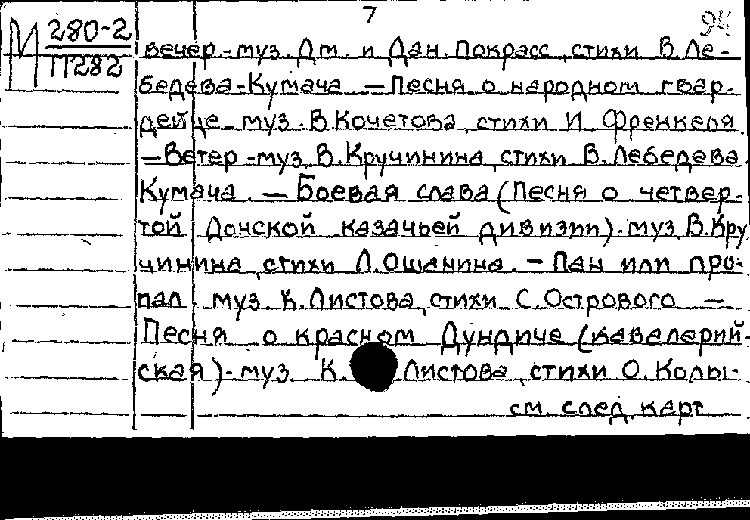 7
94
М 280-2
П282
вечер-муз. Дм. и Дан. Покрасс, стихи В. Ле-
бедева-Кумача — Песня о народном гвар-
дейце - муз. В. Кочетова, стихи И. Френкеля
— Ветер - муз. В. Кручинина, стихи В. Лебедева
Кумача. — Боевая слава (Песня о четвер-
той Донской казачьей дивизии). муз. В. Кру
чинина, стихи Л. Ошанина. — Пан или про-
пал муз. К. Листова, стихи С. Острового —
Песня о красном Дундиче (кавалерий-
ская) - муз. К. Листова, стихи О. Колы-
см. след. карт